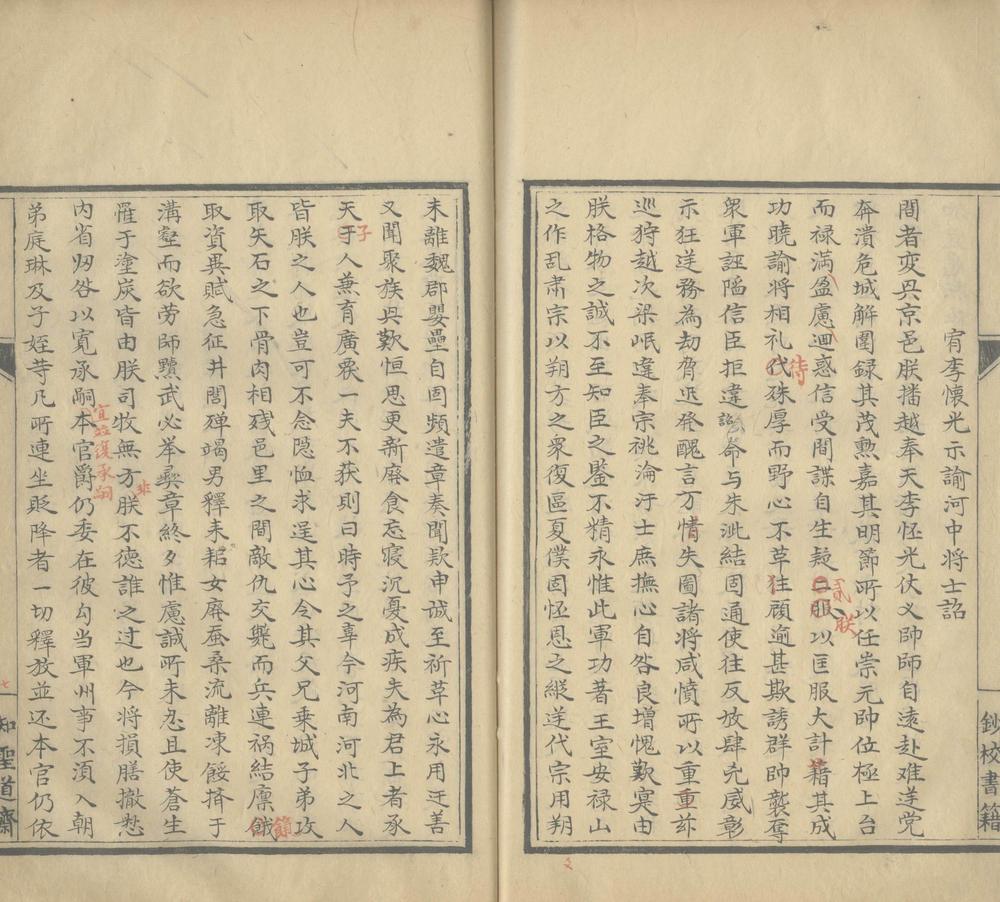 宥李懷光示諭河中將士詔
間者变興京邑朕播越奉天李怪光仗义師師自遠赴难逆党
奔潰危城解圍録其茂勲嘉其明節所以任崇元帥位極上台
而禄滿盈慮迴惑信受間諜自生疑已服以匡服大計藉其成
貳朕
功曉諭將相礼代殊厚而野心不草狂顧逾甚欺誘群帥襲奪
待
衆軍誣陥信臣拒違詔命与朱泚結固通使往反放肆兇威彰
示狂逆務為劫脅迊發醜言万情失圖諸將咸憤所以重重玆
巡狩越次梁岷違奉宗祧淪汙士庶撫心自咎良增愧歎寔由
朕格物之誠不至知臣之鑒不精永惟此軍功著王室安禄山
之作乱肃宗以朔方之衆復區夏僕固怪恩之縱逆代宗用朔
鈔校書籍
未離魏郡嬰壘自固頻遣章奏聞欵申誠至祈草心永用迁善
又聞聚族興歎恒思更新廢食忘寝沉憂成疾夫為君上者承
天于人兼育廣震一夫不获則曰時予之辜今河南河北之人
子
皆朕之人也豈可不念隐恤求逞其心令其父兄乗城子弟攻
取矢石之下骨肉相残邑里之間敵仇交斃而兵連祸結廪餓
餼
取资異賦急征井閭殫竭男釋耒耜女廢蚕桑流離凍餒擠于
溝壑而欲劳師黷武必举彝章終夕惟慮誠所未忍且使蒼生
罹于塗炭皆由朕司牧無方朕不德誰之过也今將損膳撤愁
非
内省归咎以寛承嗣本官爵仍委在彼勾当軍州事不湏入朝
宜並復承嗣
弟庭琳及子姪等凡所連坐貶降者一切釋放並还本官仍依
七
知聖道齋